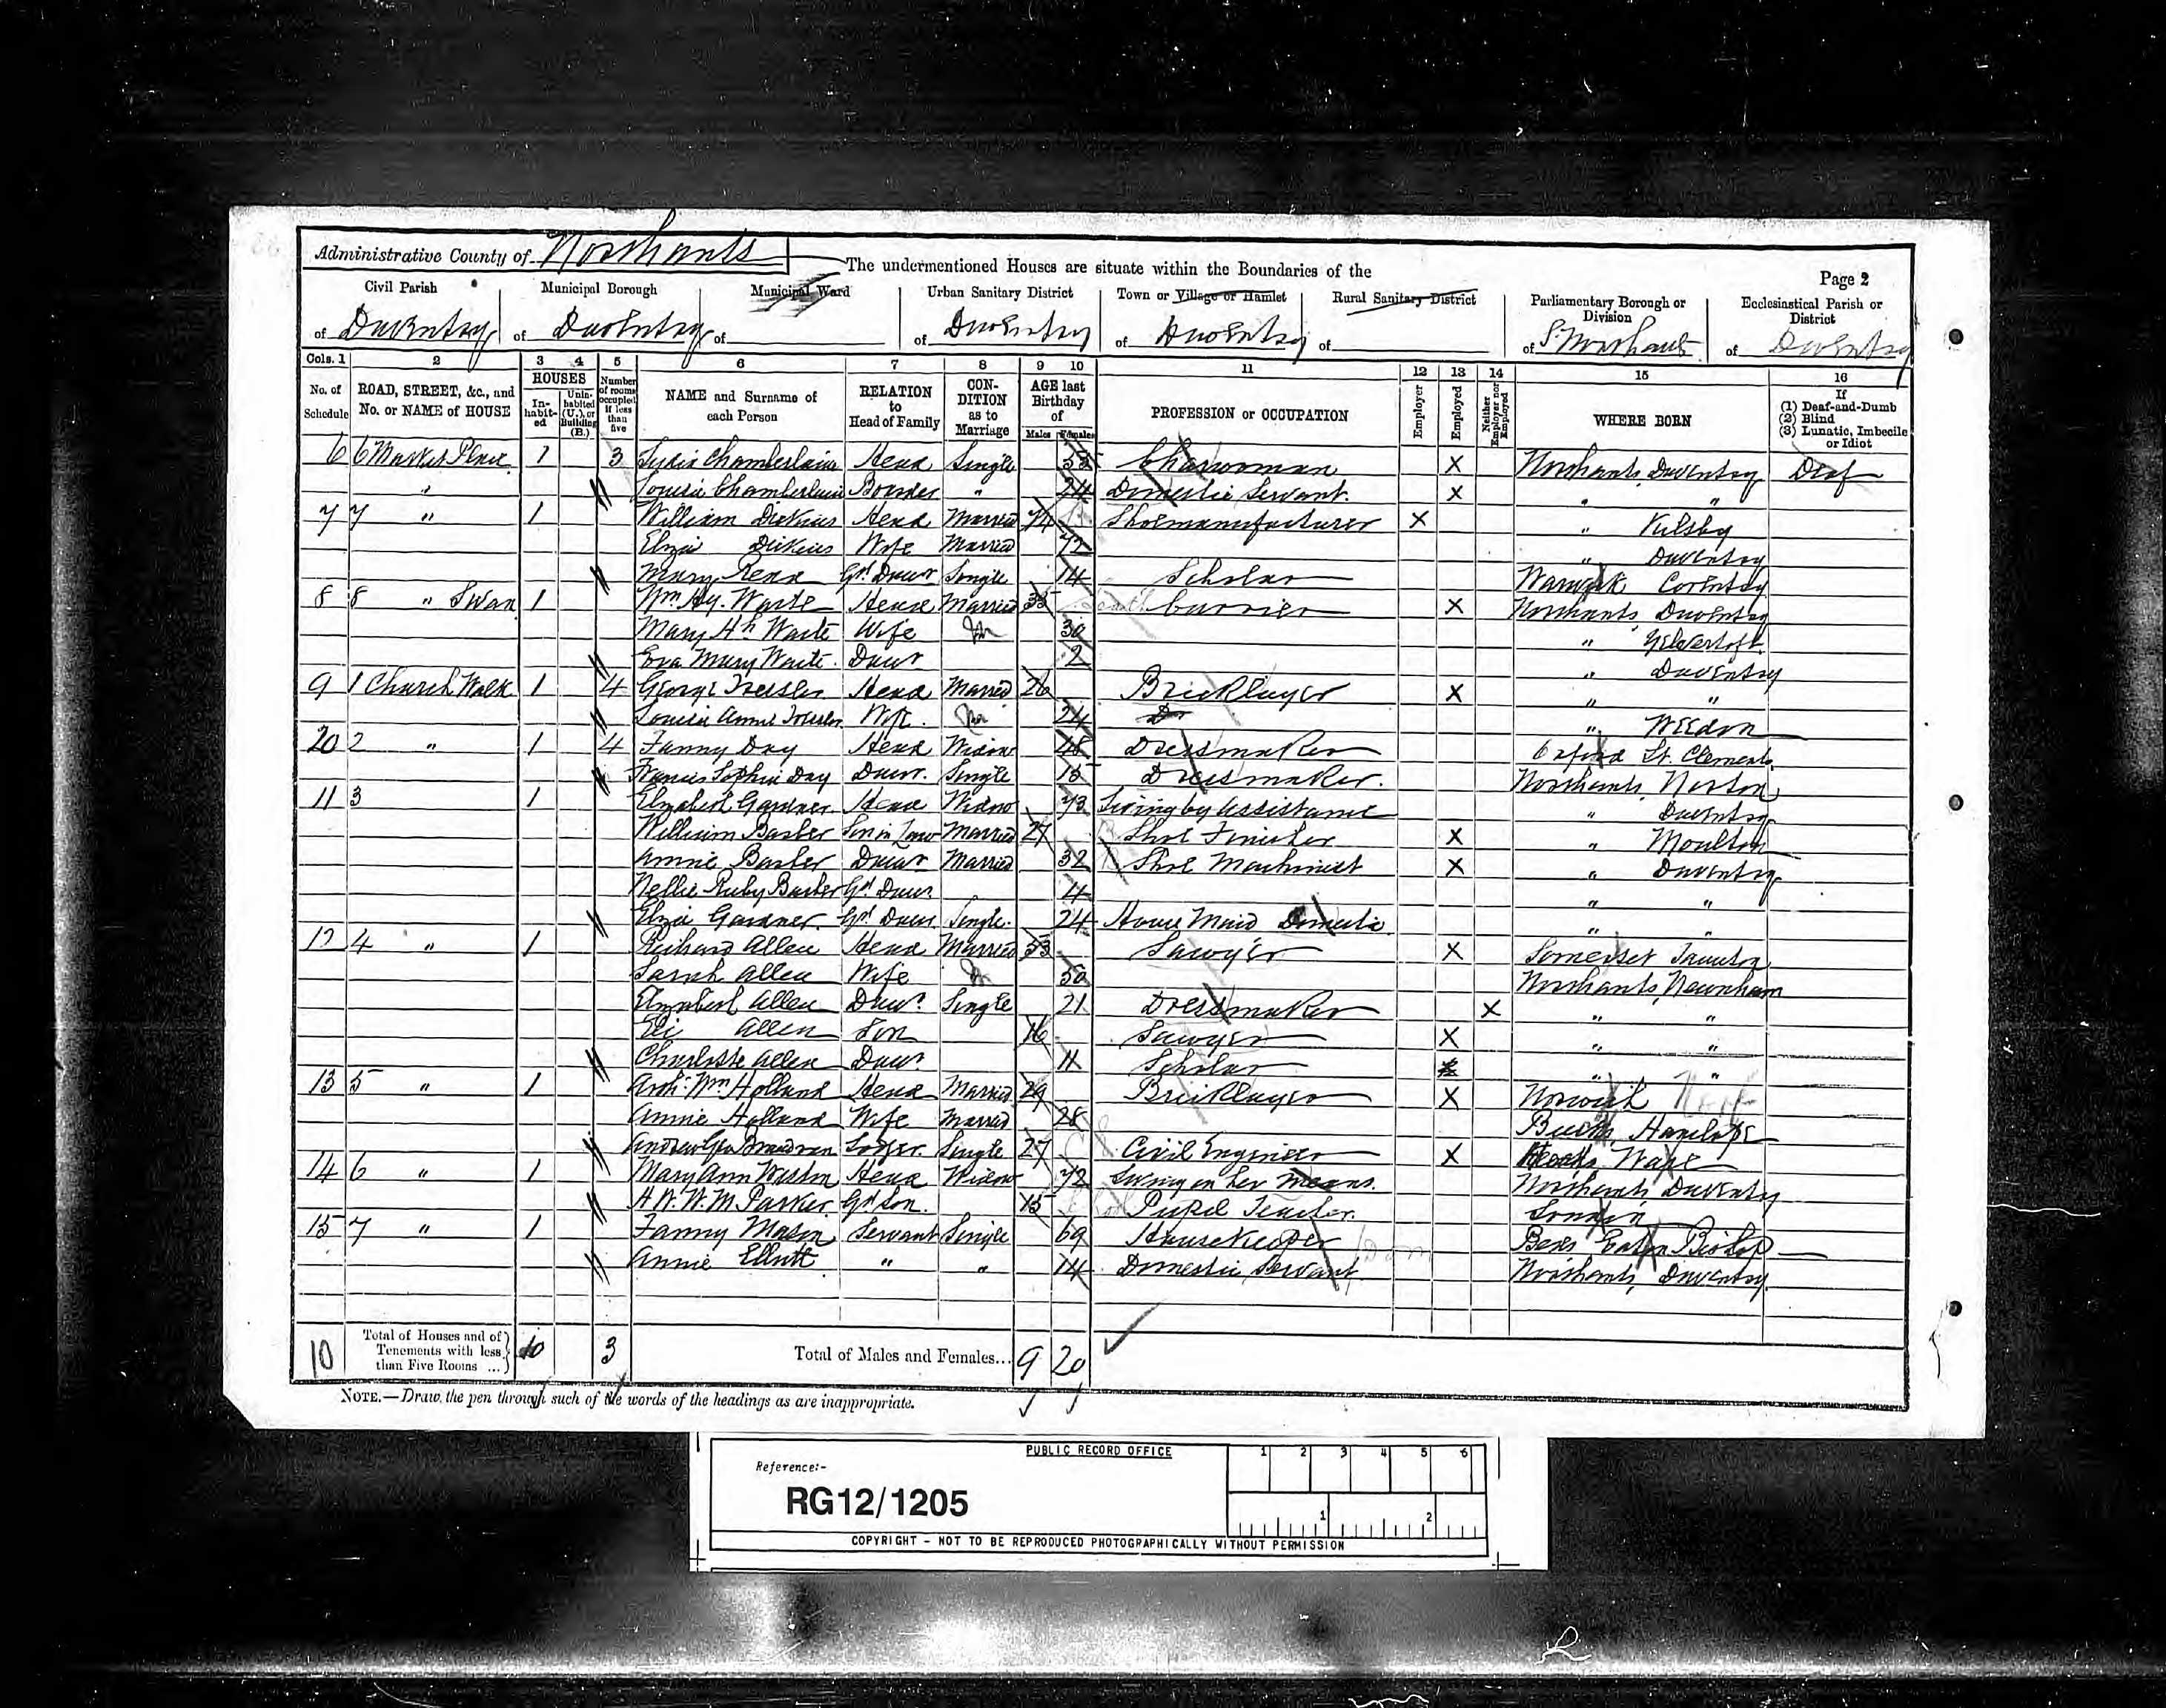 Administrative County of Northants
The undermentioned Houses are situate within the Boundaries of the
Page 2
Civil Parish Municipal Borough Municipal Ward Urban Sanitary District Town or Village or Hamlet Rural Sanitary District Parliamentary Borough or Division Ecclesiastical Parish or District
of Daventry of Daventry of of Daventry of Daventry of of S. Northants of Daventry
Cols. 1 2 3 4 5 6 7 8 9 10 11 12 13 14 15 16
No. of Schedule ROAD, STREET, &c., and No. or NAME of HOUSE HOUSES In-habit-ed Unin-habited (U.), or Building (B.) Number of rooms occupied if less than five NAME and Surname of each Person RELATION to Head of Family CON-DITION as to Marriage AGE last Birthday of Males Females PROFESSION or OCCUPATION Employer Employed Neither Employer nor Employed WHERE BORN If (1) Deaf-and-Dumb (2) Blind (3) Lunatic, Imbecile or Idiot
6 6 Market Place 1 3 Chamberlain Head Single 55 Charwoman X Northants, Daventry Deaf
" Louisa Chamberlain Boarder " 24 Domestic Servant. X " "
7 7 " 1 William Dickins Head Married 74 Shoemanufacturer X " Kilsby
Eliza Dickins Wife Married 72 " Daventry
Mary Gd Daur Single 14 Scholar Warwick Coventry
8 8 " Swan 1 Wm Hy. Waite Head Married 35 Currier X Northants, Daventry
Mary Ah Waite Wife 30 " Yelvertoft
Eva Mary Waite. Daur 2 " Daventry
9 1 Church Walk 1 4 George Head Married 26 Bricklayer X " "
Louisa Annie Wife. 24 Do " Weedon
20 2 " 1 4 Fanny Day Head Widow 48 Dressmaker Oxford St. Clements
Francis Sophia Day Daur. Single 15 Dressmaker. Northants, Norton
11 3 1 Elizabeth Gardner. Head Widow 73 Living by Assistance " Daventry
William Barber Son in Law Married 27 Shoe Finisher X " Moulton
Annie Barber Daur Married 32 Shoe Machinist X " Daventry
Nellie Ruby Barber Gd Daur. 4 " "
Eliza Gardner. Gd Daur Single. 24 House Maid Domestic " "
12 4 " 1 Richard Allen Head Married 53 Sawyer X Somerset Taunton
Sarah Allen Wife 50 Northants, Newnham
Elizabeth Allen Daur. Single 21 Dressmaker X " "
Eli Allen Son 16 Sawyer X " "
Charlotte Allen Daur. 11 Scholar " "
13 5 " 1 Arth: Wm Holland Head Married 29 Bricklayer X Norwich
Annie Holland Wife Married 28 Bucks, Hanslope
Andrew Geo Lodger. Single 27 Civil Engineer X Herts, Ware
14 6 " 1 Mary Ann Weston Head Widow 72 Living on her means. Northants, Daventry
A. W. W. M. Parker Gd Son. 15 Pupil Teacher. London
15 7 " 1 Fanny Mason Servant Single 69 Housekeeper Dom Beds Eaton Bishop
Annie Elliott " " 14 Domestic Servant Northants, Daventry
10 Total of Houses and of Tenements with less than Five Rooms ... 10 3 Total of Males and Females... 9 20
NOTE.—Draw the pen through such of the words of the headings as are inappropriate.
PUBLIC RECORD OFFICE
1 2 3 4 5 6
Reference:-
RG12/1205
1 2
COPYRIGHT - NOT TO BE REPRODUCED PHOTOGRAPHICALLY WITHOUT PERMISSION